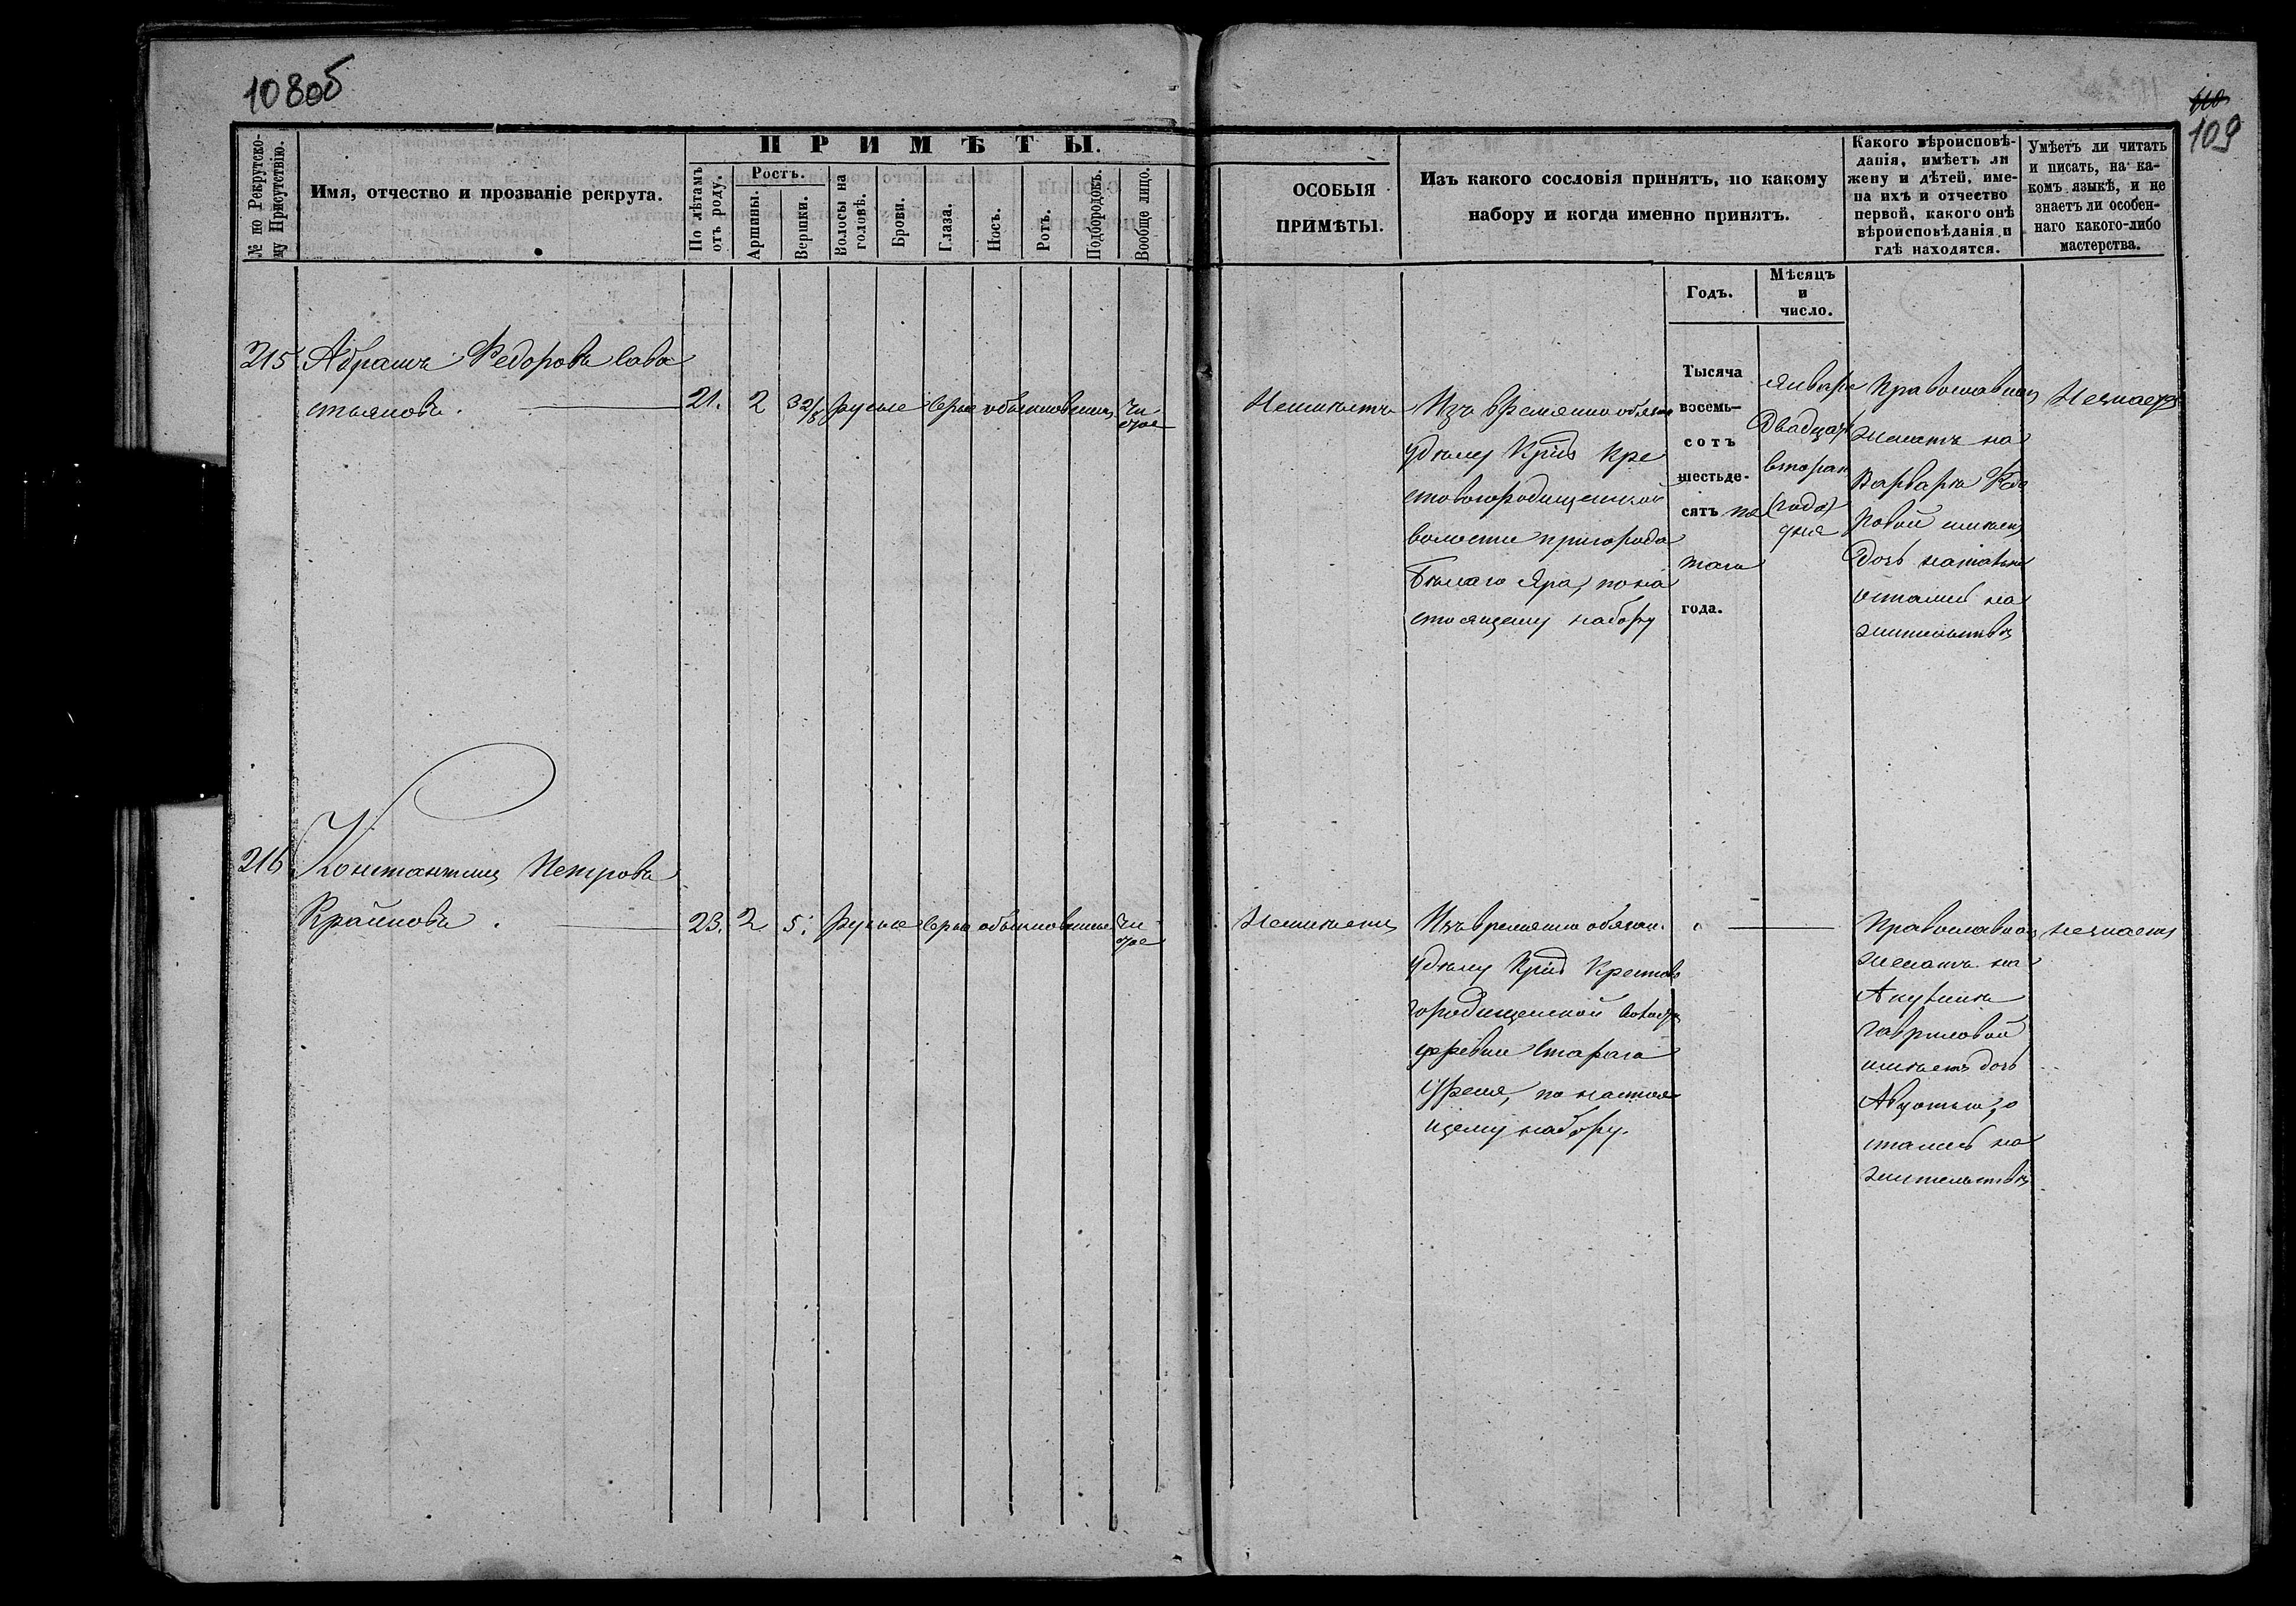 108об
110
109
№ по Рекрутско-
му Присутствію.
Имя, отчество и прозваніе рекрута.
ПРИМѢТЫ.
По лѣтамъ
отъ роду.
Ростъ.
Аршины.
Вершки.
Волосы на
головѣ.
Брови.
Глаза.
Носъ.
Ротъ.
Подбородокъ.
Вообще лицо.
ОСОБЫЯ
ПРИМѢТЫ.
Изъ какого сословія принятъ, по какому
набору и когда именно принятъ.
Какого вѣроисповѣ-
данія, имѣетъ ли
жену и дѣтей, име-
на ихъ и отчество
первой, какого онѣ
вѣроисповѣданія и
гдѣ находятся.
Умѣетъ ли читать
и писать, на ка-
комъ языкѣ, и не
знаетъ ли особен-
наго какого-либо
мастерства.
Годъ.
Мѣсяцъ
и
число.
215
Абрамъ Федоровъ Сава
стьяновъ.
21.
2
3 2/8
русые
серые
обыкновенны
чи-
стое
Неимѣетъ
Изъ временно обязан
Удѣлу Крнъ Кре
стовогородищенской
волости пригорода
Бѣлаго Яра, по на
стоящему набору
Тысяча
восемь-
сотъ
шестьде-
сятъ пя
таго
года.
Января
Двадцать
втораго
(года)
дня
Православнаго
женатъ на
Варварѣ Федо
ровой имѣетъ
дочь Наталью
остались на
жительствѣ
Незнаетъ
216
Константинъ Петровъ
Крайновъ.
23.
2
5.
русые
серые
обыкновенные
чи-
стое
Неимѣетъ
Изъ временно обязан.
Удѣлу Крнъ Крестово
городищенской волости
деревни Стараго
Уреня, по настоя
щему набору.
Православнаго
женатъ на
Акулинѣ
Гавриловой
имѣетъ дочь
Авдотью, о
стались на
жительствѣ
незнаетъ